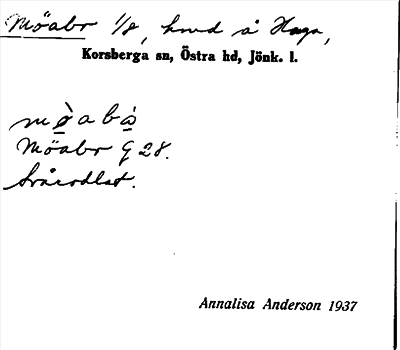 Möabr 1/8, hmd å Haga,
Korsberga sn, Östra hd, Jönk. l.
mø̀abå̀
Möabr G 28.
Svårodlat.
Annalisa Anderson 1937